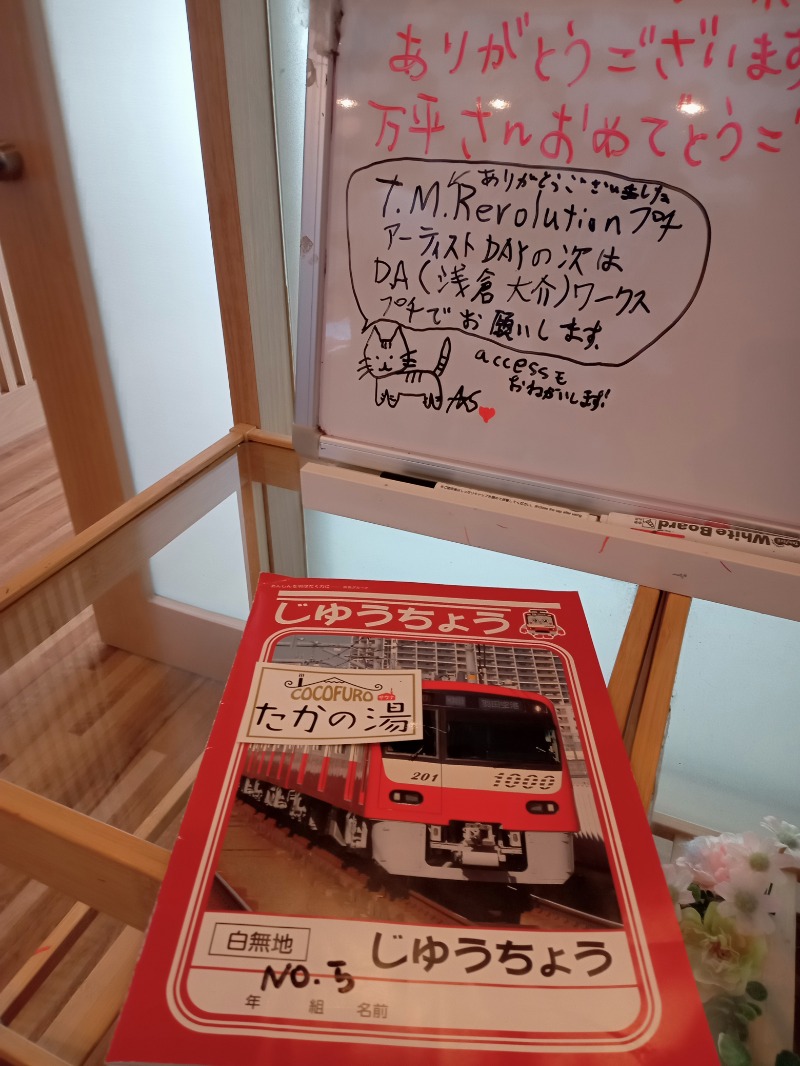 ありがとうございます
万平さんおめでとうご
ありがとうございました
T.M.Revolutionプチ
アーティストDAYの次は
DA(浅倉大介)ワークス
プチでお願いします。
accessも
おねがいします!
WhiteBoard
じゆうちょう
COCOFURO
たかの湯
201
1000
白無地
じゆうちょう
NO.5
年 組 名前